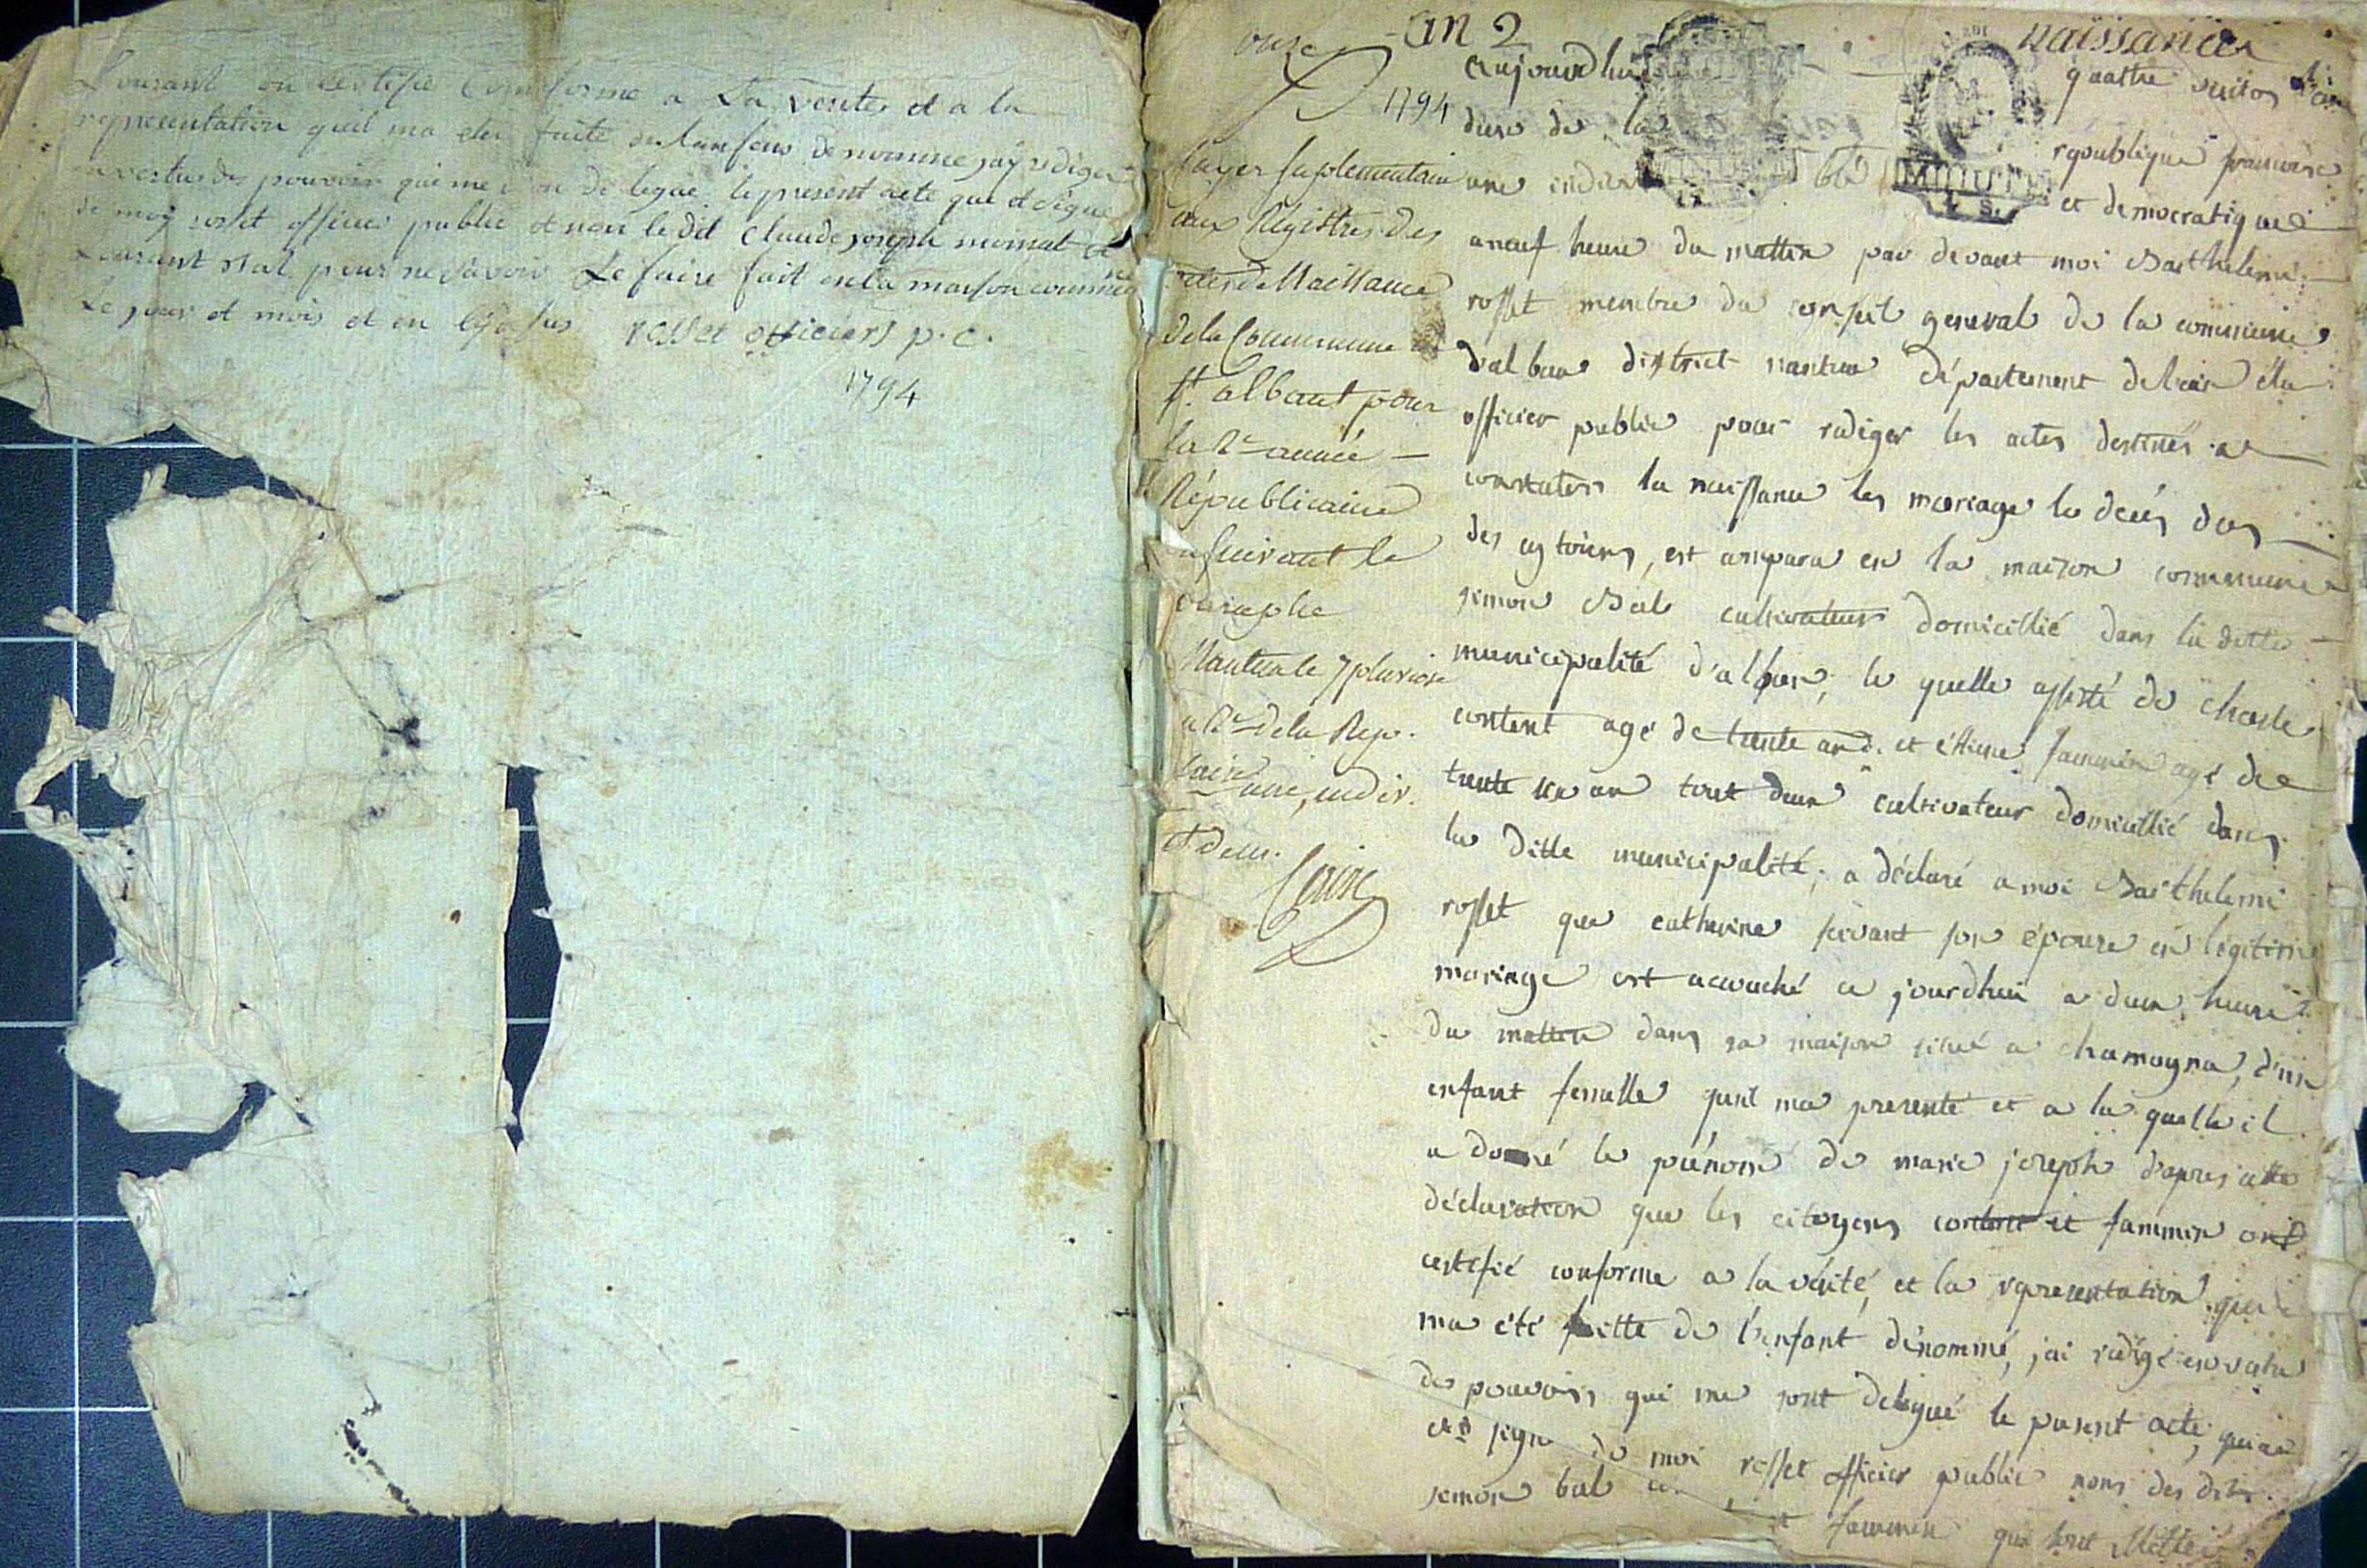 Courant on certifie conforme a La verite et a la
representation quil ma ete faite de lanfens denomme jay rediger
en vertus des pouvoir qui me son de legue le present acte que et signe
de moy rosset officier public et non le dit claude joseph mornat et
Courant Bal pour ne savoir Le faire fait en la maison commune
Le jour et mois et en que desus rosset officiers p. c.
1794
onze
an 2
naissances
1794
fayer suplementaire
aux Registres des
actes de Naissance
de la Commune de
St. albaut pour
la 2e année
Républicaine
a suivant le
paraphe
Nantua le 7 pluviose
a 2e de la Rep.
une, indiv.
et dem.
aujourdhui quattre
dure de la republique francaise
une indivisible et democratique
a neuf heure du mattin par devant moi Barthelemi
rosset membre du conseil general de la commune
d'alban district nantua département de lain élu
officier public pour rediger les actes destinés a
constater la naissance les mariage le decés des
des cytoiens, est comparu en la maison commune
simon Bal cultivateur domicillié dans la ditte
municipalité d'alban, le quelle assisté de charle
content agé de trente ans et étienne fammin agé de
trente un an tout deux cultivateur domicillié dans
la ditte municipalité, a déclaré a moi Barthelemi
rosset que catherine servant son épouse en légitime
mariage est accouché ce jourdhui a deux heure
du mattin dans sa maison situé a chamogna, d'un
enfant femelle quil ma presenté et a la quelle il
a donné le prénom de marie joseph d'apres cette
déclaration que les citoyens content et fammin ont
certifié conforme a la vérité, et la representation qui
ma été faitte de l'enfant dénommé, jai redigé en vertu
des pouvoirs qui me sont delegué le present acte, qui a
été signé de moi rosset officier public nons des dits
simon bal et fammin qui sont